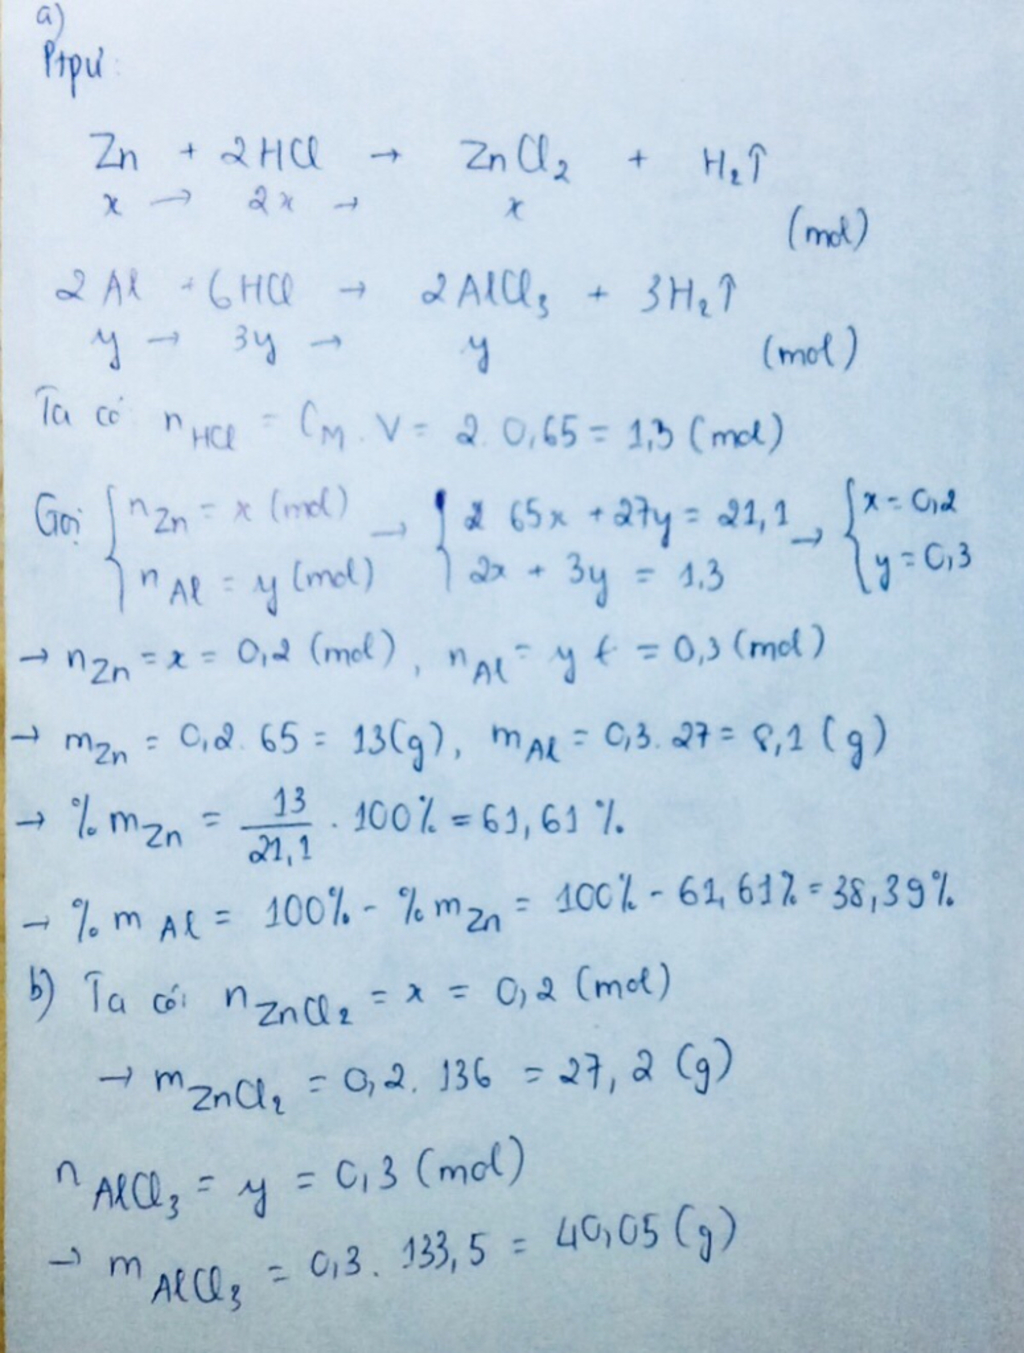 a)
Ptpư:
Zn + 2HCl → ZnCl₂ + H₂↑
x → 2x → x
(mol)
2Al + 6HCl → 2AlCl₃ + 3H₂↑
y → 3y → y (mol)
Ta có n HCl = CM . V = 2 . 0,65 = 1,3 (mol)
Gọi { nZn = x (mol) → { 65x + 27y = 21,1 → { x = 0,2
nAl = y (mol) 2x + 3y = 1.3 y = 0,3
→ nZn = x = 0,2 (mol), nAl = y = 0,3 (mol)
→ mZn = 0,2 . 65 = 13(g), mAl = 0,3 . 27 = 8,1 (g)
→ % mZn = 13/21,1 . 100% = 61,61 %.
→ % m Al = 100% - % mZn = 100% - 61,61% = 38,39%.
b) Ta có: nZnCl₂ = x = 0,2 (mol)
→ mZnCl₂ = 0,2 . 136 = 27,2 (g)
n AlCl₃ = y = 0,3 (mol)
→ m AlCl₃ = 0,3 . 133,5 = 40,05 (g)